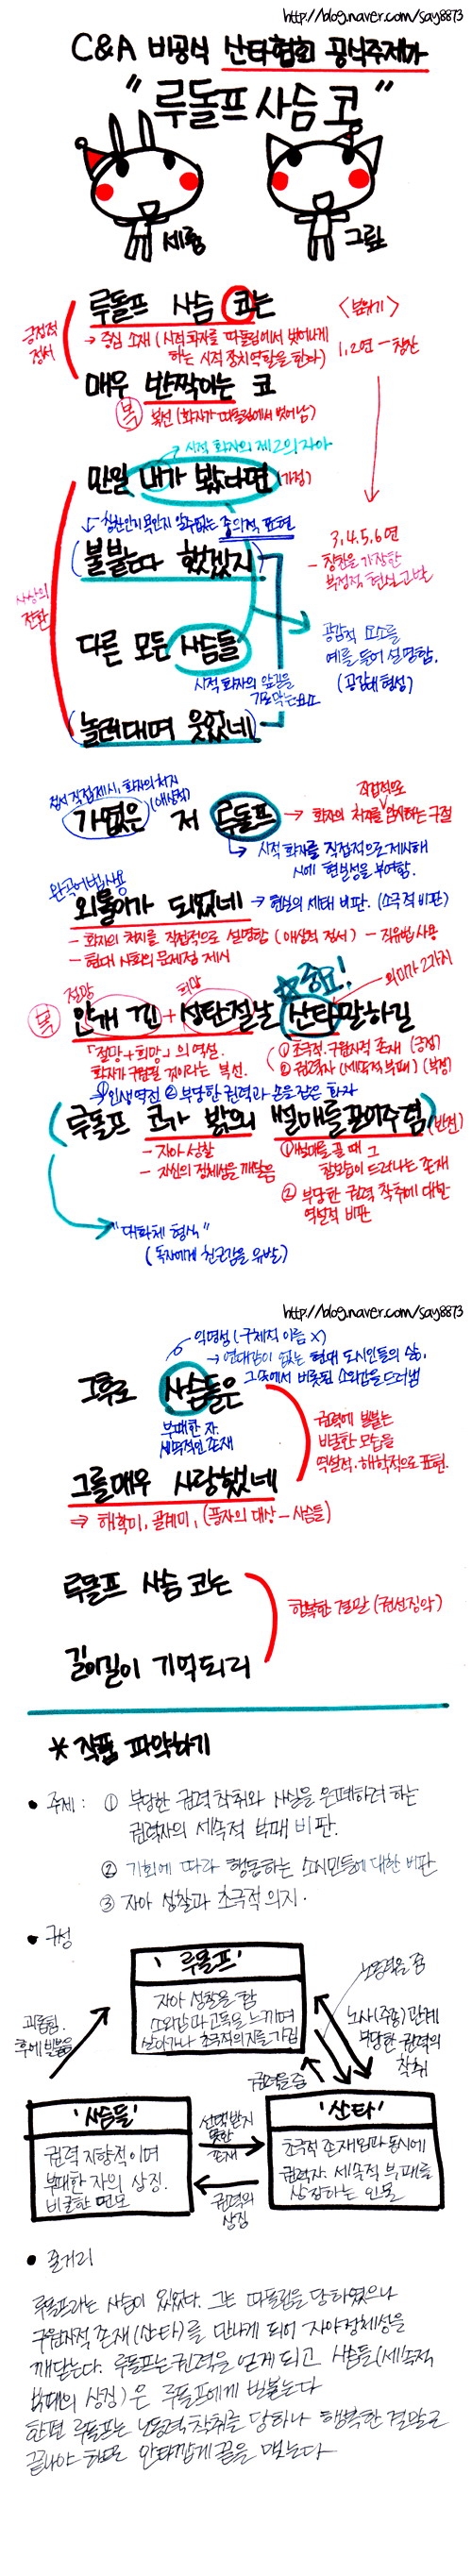 http://blog.naver.com/say8873
C&A 비공식 산타협회 공식주제가
"루돌프 사슴 코"
세룡
그림
루돌프 사슴 코는
긍정적 정서
→ 중심 소재 (시적 화자를 따돌림에서 벗어나게
하는 시적 장치 역할을 한다)
<분위기>
1, 2연 - 칭찬
매우 반짝이는 코
복 복선 (화자가 따돌림에서 벗어남)
시적 화자의 제2의 자아
만일 내가 봤다면 (가정)
↳ 칭찬인지 욕인지 알 수 없는 중의적 표현
불붙는다 했겠지
3, 4, 5, 6연
- 칭찬을 가장한
부정적 현실 고발
시상의 전환
다른 모든 사슴들
시적 화자의 앞길을
가로막는 요소
공감적 요소를
예를 들어 설명함.
(공감대 형성)
놀려대며 웃었네
정서 직접제시, 화자의 처지
(애상적)
가엾은 저 루돌프
직접적으로
→ 화자의 처지를 암시하는 구절
↳ 시적 화자를 직접적으로 제시해
시에 현실성을 부여함.
완곡어법 사용
외톨이가 되었네 → 현실의 세태 비판. (소극적 비판)
- 화자의 처지를 직접적으로 설명함 (애상적 정서) - 직유법 사용
- 현대 사회의 문제점 제시
절망
희망
중요!
의미가 2가지
복 안개 낀 + 성탄절날 산타 말하길
「절망+희망」의 역설.
화자가 구원될 것이라는 복선.
① 초극적·구원자적 존재 (긍정)
② 권력자 (세속적 부패) (부정)
① 인생역전 ② 부당한 권력과 손을 잡은 화자
루돌프 코가 밝으니 썰매를 끌어주렴 (반전)
- 자아 성찰
- 자신의 정체성을 깨달음
① 썰매를 끌 때 그
참모습이 드러나는 존재
② 부당한 권력 착취에 대한
역설적 비판
"대화체 형식"
(독자에게 친근감을 유발)
http://blog.naver.com/say8873
익명성 (구체적 이름 X)
→ 연대감이 없는 현대 도시인들의 삶.
그 속에서 비롯된 소외감을 드러냄
그후로 사슴들은
부패한 자.
세속적인 존재
권력에 빌붙는
비굴한 모습을
역설적·해학적으로 표현.
그를 매우 사랑했네
⇒ 해학미, 골계미, (풍자의 대상 - 사슴들)
루돌프 사슴 코는
행복한 결말 (권선징악)
길이길이 기억되리
* 작품 파악하기
• 주제 : ① 부당한 권력 착취와 사실을 은폐하려 하는
권력자의 세속적 부패 비판.
② 기회에 따라 행동하는 소시민들에 대한 비판
③ 자아 성찰과 초극적 의지.
• 구성
'루돌프'
자아 성찰을 함
소외감과 고통을 느끼며
살아가나 초극적 의지를 가짐
괴롭힘.
후에 빌붙음
노동력을 줌
노사(주종) 관계
부당한 권력의
착취
권력을 줌
'사슴들'
권력 지향적이며
부패한 자의 상징.
비굴한 면모
선택받지
못한
존재
권력의
상징
'산타'
초극적 존재임과 동시에
권력자. 세속적 부패를
상징하는 인물
• 줄거리
루돌프라는 사슴이 있었다. 그는 따돌림을 당하였으나
구원자적 존재(산타)를 만나게 되어 자아정체성을
깨닫는다. 루돌프는 권력을 얻게 되고 사슴들(세속적
부패의 상징)은 루돌프에게 빌붙는다
한편 루돌프는 노동력 착취를 당하나 행복한 결말로
끝나야 하므로 안타깝게 끝을 맺는다